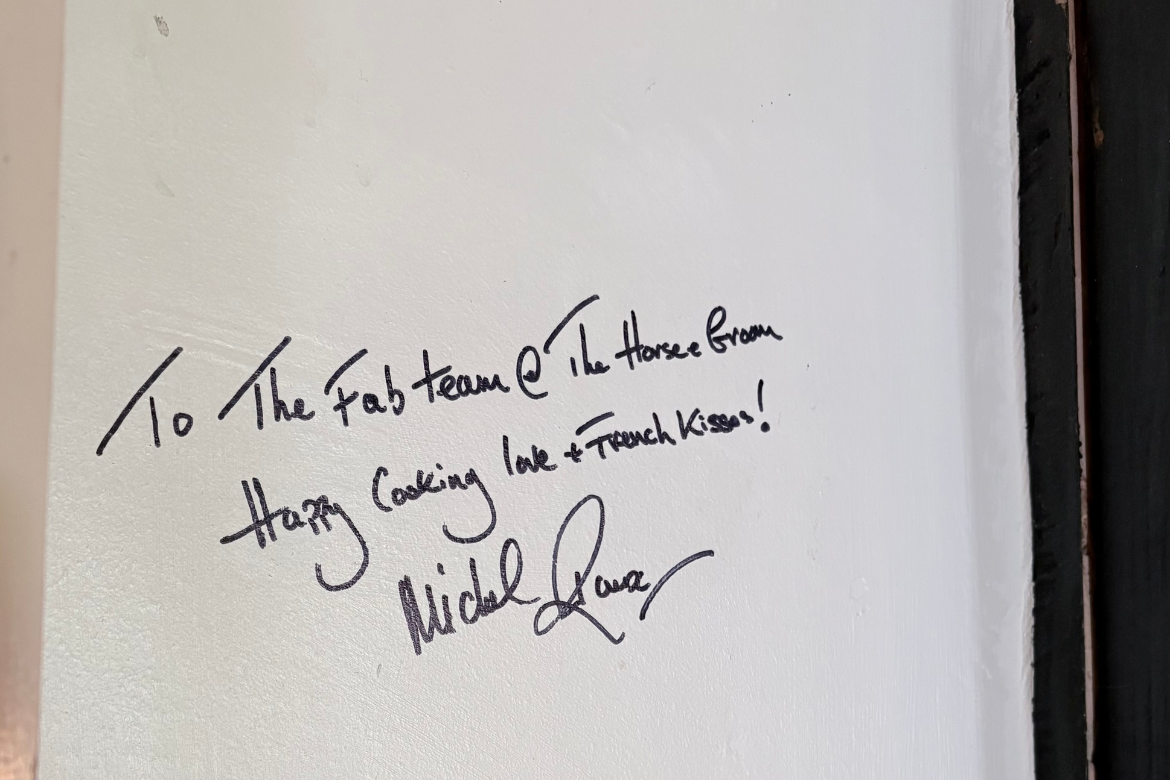 To The Fab team @ The Horse & Groom
Happy Cooking love + French Kisses!
Michel Roux